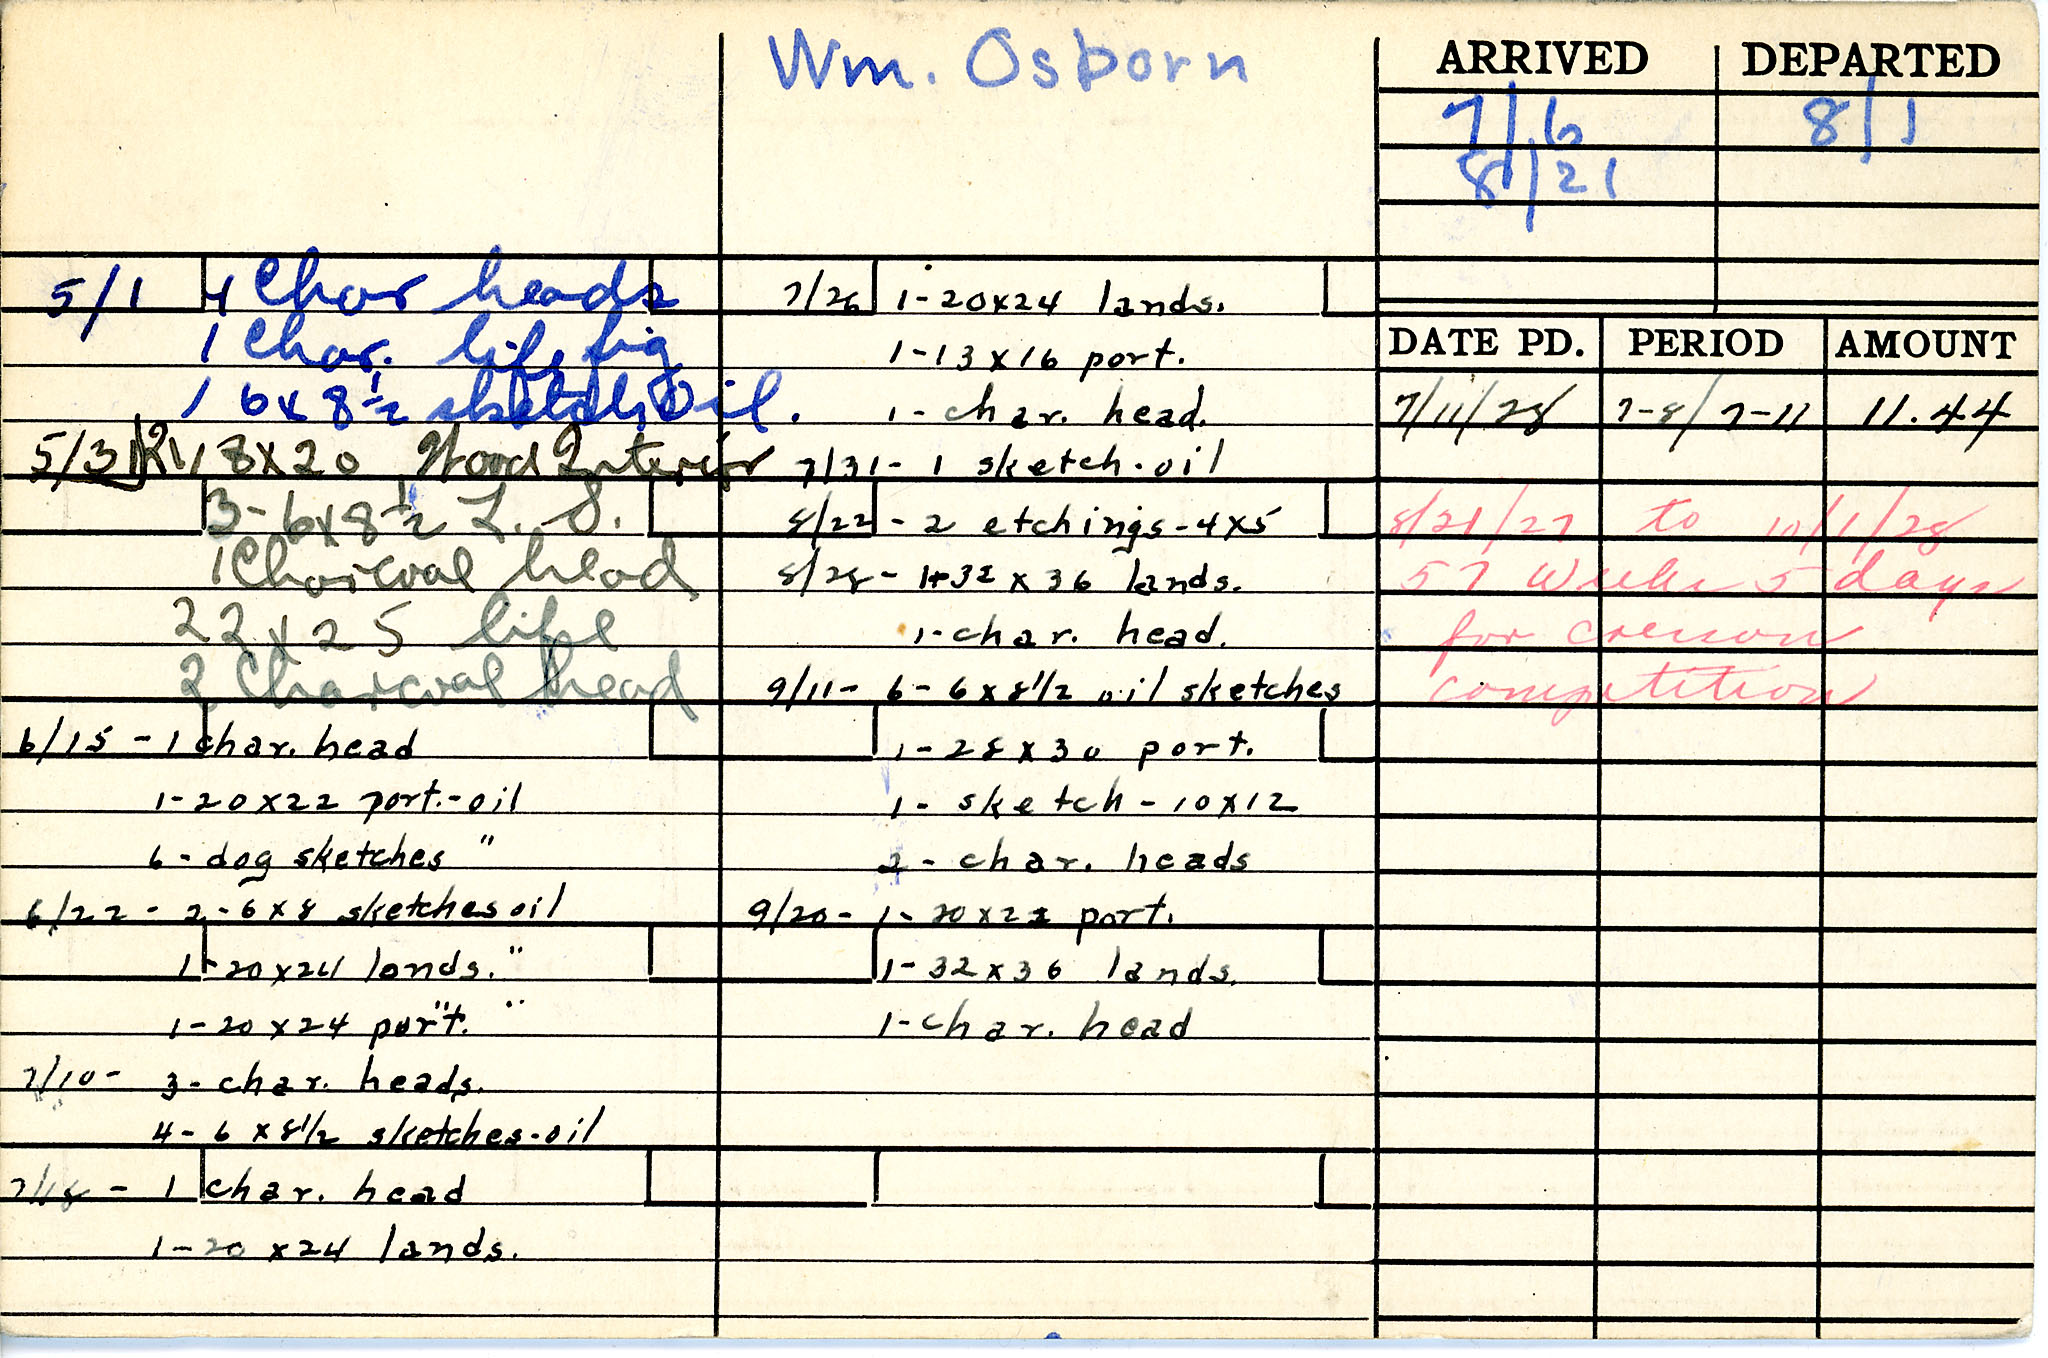 Wm. Osborn
ARRIVED DEPARTED
7/6 8/1
8/21
5/1 4 Char heads
1 Char. life fig
1 6x8½ sketch Oil.
5/31 18x20 Wood Interior
3-6x8½ L. S.
1 Charcoal head
22x25 life
2 Charcoal head
6/15 - 1 char. head
1-20x22 port.-oil
6 - dog sketches "
6/22 - 2-6x8 sketches oil
1-20x24 lands. "
1-20x24 port. "
7/10 - 3- char. heads.
4- 6 x 8½ sketches-oil
7/18 - 1 char. head
1-20 x24 lands.
7/26 1-20x24 lands.
1-13x16 port.
1- char. head.
7/31- 1 sketch-oil
8/22 - 2 etchings-4x5
8/28 - 1-32 x 36 lands.
1-char. head.
9/11- 6- 6x8½ oil sketches
1-28x30 port.
1- sketch-10x12
2- char. heads
9/20- 1-20x22 port.
1-32x36 lands.
1-char. head
DATE PD. PERIOD AMOUNT
7/11/28 7-8/7-11 11.44
8/21/27 to 10/1/28
57 weeks 5 days
for cresson
competition